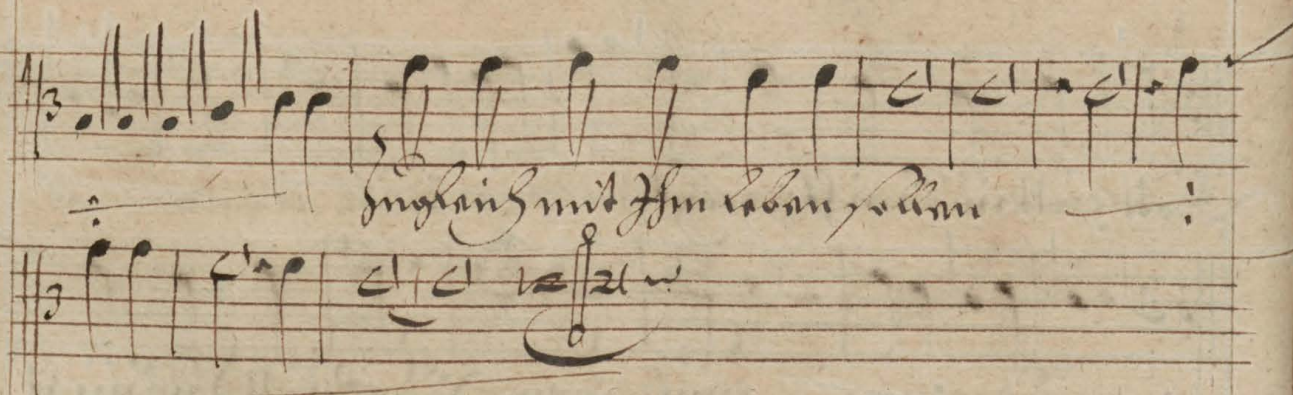 Zugleich mit Ihm leben sollen